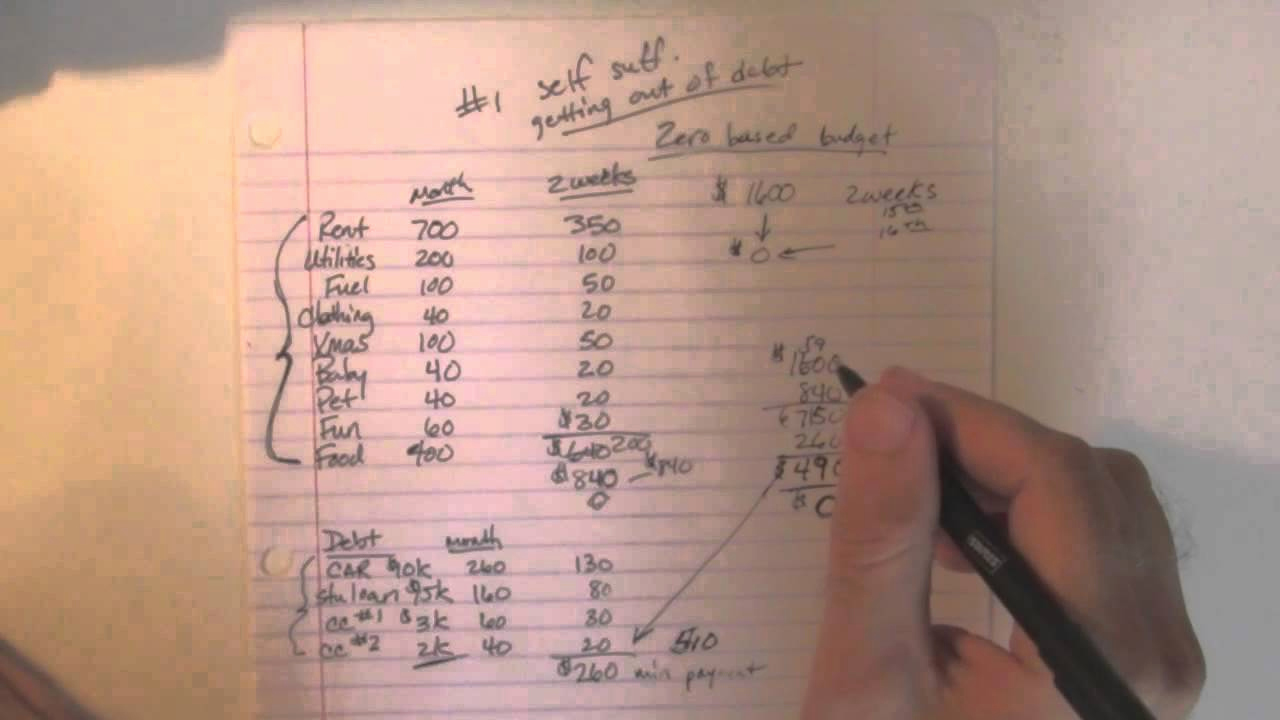 #1 self suff.
getting out of debt
Zero based budget
month 2 weeks $ 1600 2 weeks
15th
16th
Rent 700 350
$ 0
Utilities 200 100
Fuel 100 50
Clothing 40 20
Xmas 100 50
Baby 40 20
Pet 40 20
Fun 60 $30
Food 400 $640 200
$840 $840
0
59
$1600
840
750
260
$490
$0
Debt month
CAR $10k 260 130
stu loan $15k 160 80
cc #1 $3k 60 30
cc #2 2k 40 20 510
$260 min payment